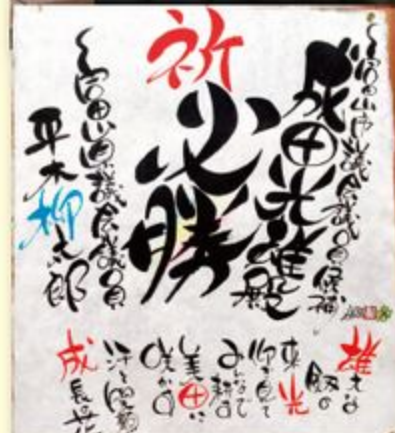 富山市議会議員候補
成田光雄殿
祈
必勝
富山県議会議員
平木柳太郎
雄大な
朝の
来光
仰ぎ見て
みんなで耕す
美田に
咲かす
汗と
成長の花